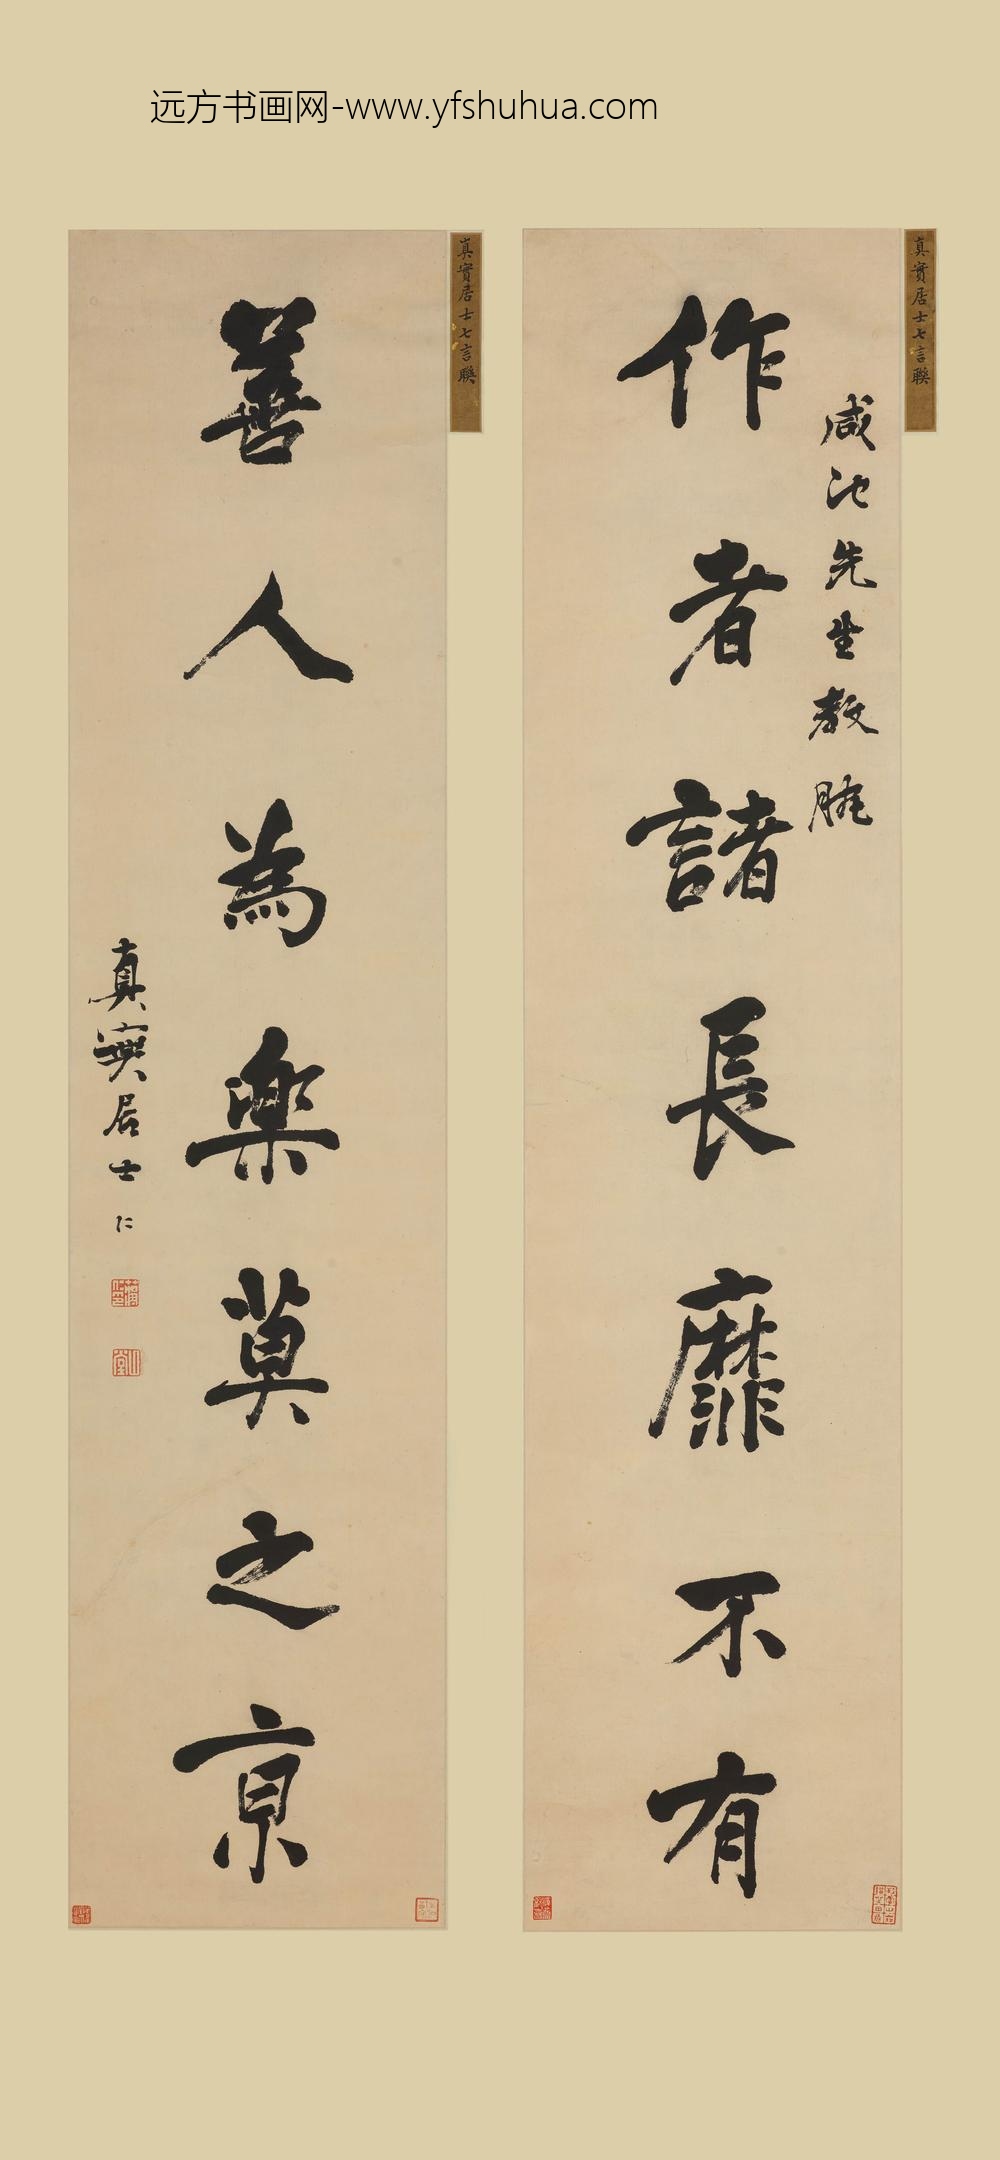 远方书画网-www.yfshuhua.com
真實居士七言聯
咸池先生教腕
作者諸長靡不有
真實居士七言聯
善人為樂莫之京
真實居士仁